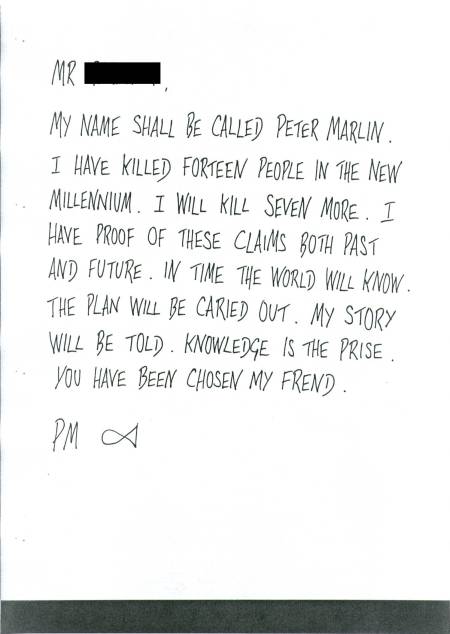 MR ,
MY NAME SHALL BE CALLED PETER MARLIN.
I HAVE KILLED FORTEEN PEOPLE IN THE NEW
MILLENNIUM. I WILL KILL SEVEN MORE. I
HAVE PROOF OF THESE CLAIMS BOTH PAST
AND FUTURE. IN TIME THE WORLD WILL KNOW.
THE PLAN WILL BE CARIED OUT. MY STORY
WILL BE TOLD. KNOWLEDGE IS THE PRISE.
YOU HAVE BEEN CHOSEN MY FREND.
PM